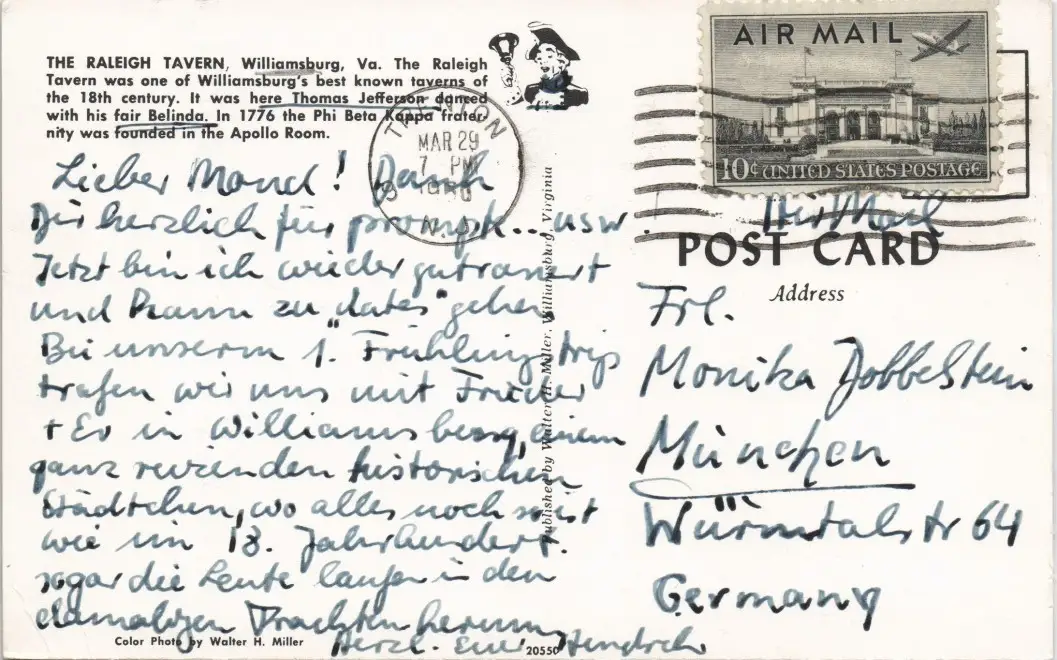 THE RALEIGH TAVERN, Williamsburg, Va. The Raleigh
Tavern was one of Williamsburg's best known taverns of
the 18th century. It was here Thomas Jefferson danced
with his fair Belinda. In 1776 the Phi Beta Kappa frater-
nity was founded in the Apollo Room.
Lieber Mond! Dank
Dir herzlich für prompte.. usw.
Jetzt bin ich wieder
und kann zu "dates" gehen
Bei unserm 1. Frühlingstrip
trafen wir uns mit Frieder
+ Ev in Williamsburg, einem
ganz reizenden historischen
Städtchen, wo alles noch so ist
wie im 18. Jahrhundert.
sogar die Leute laufen in den
damaligen Trachten herum
Herzl. Eure
Color Photo by Walter H. Miller
20550
Published by Walter H. Miller, Williamsburg, Virginia
MAR 29
7 PM
N.J.
AIR MAIL
10¢ UNITED STATES POSTAGE
Air Mail
POST CARD
Address
Frl.
Monika Dobbelstein
München
Würmtalstr 64
Germany